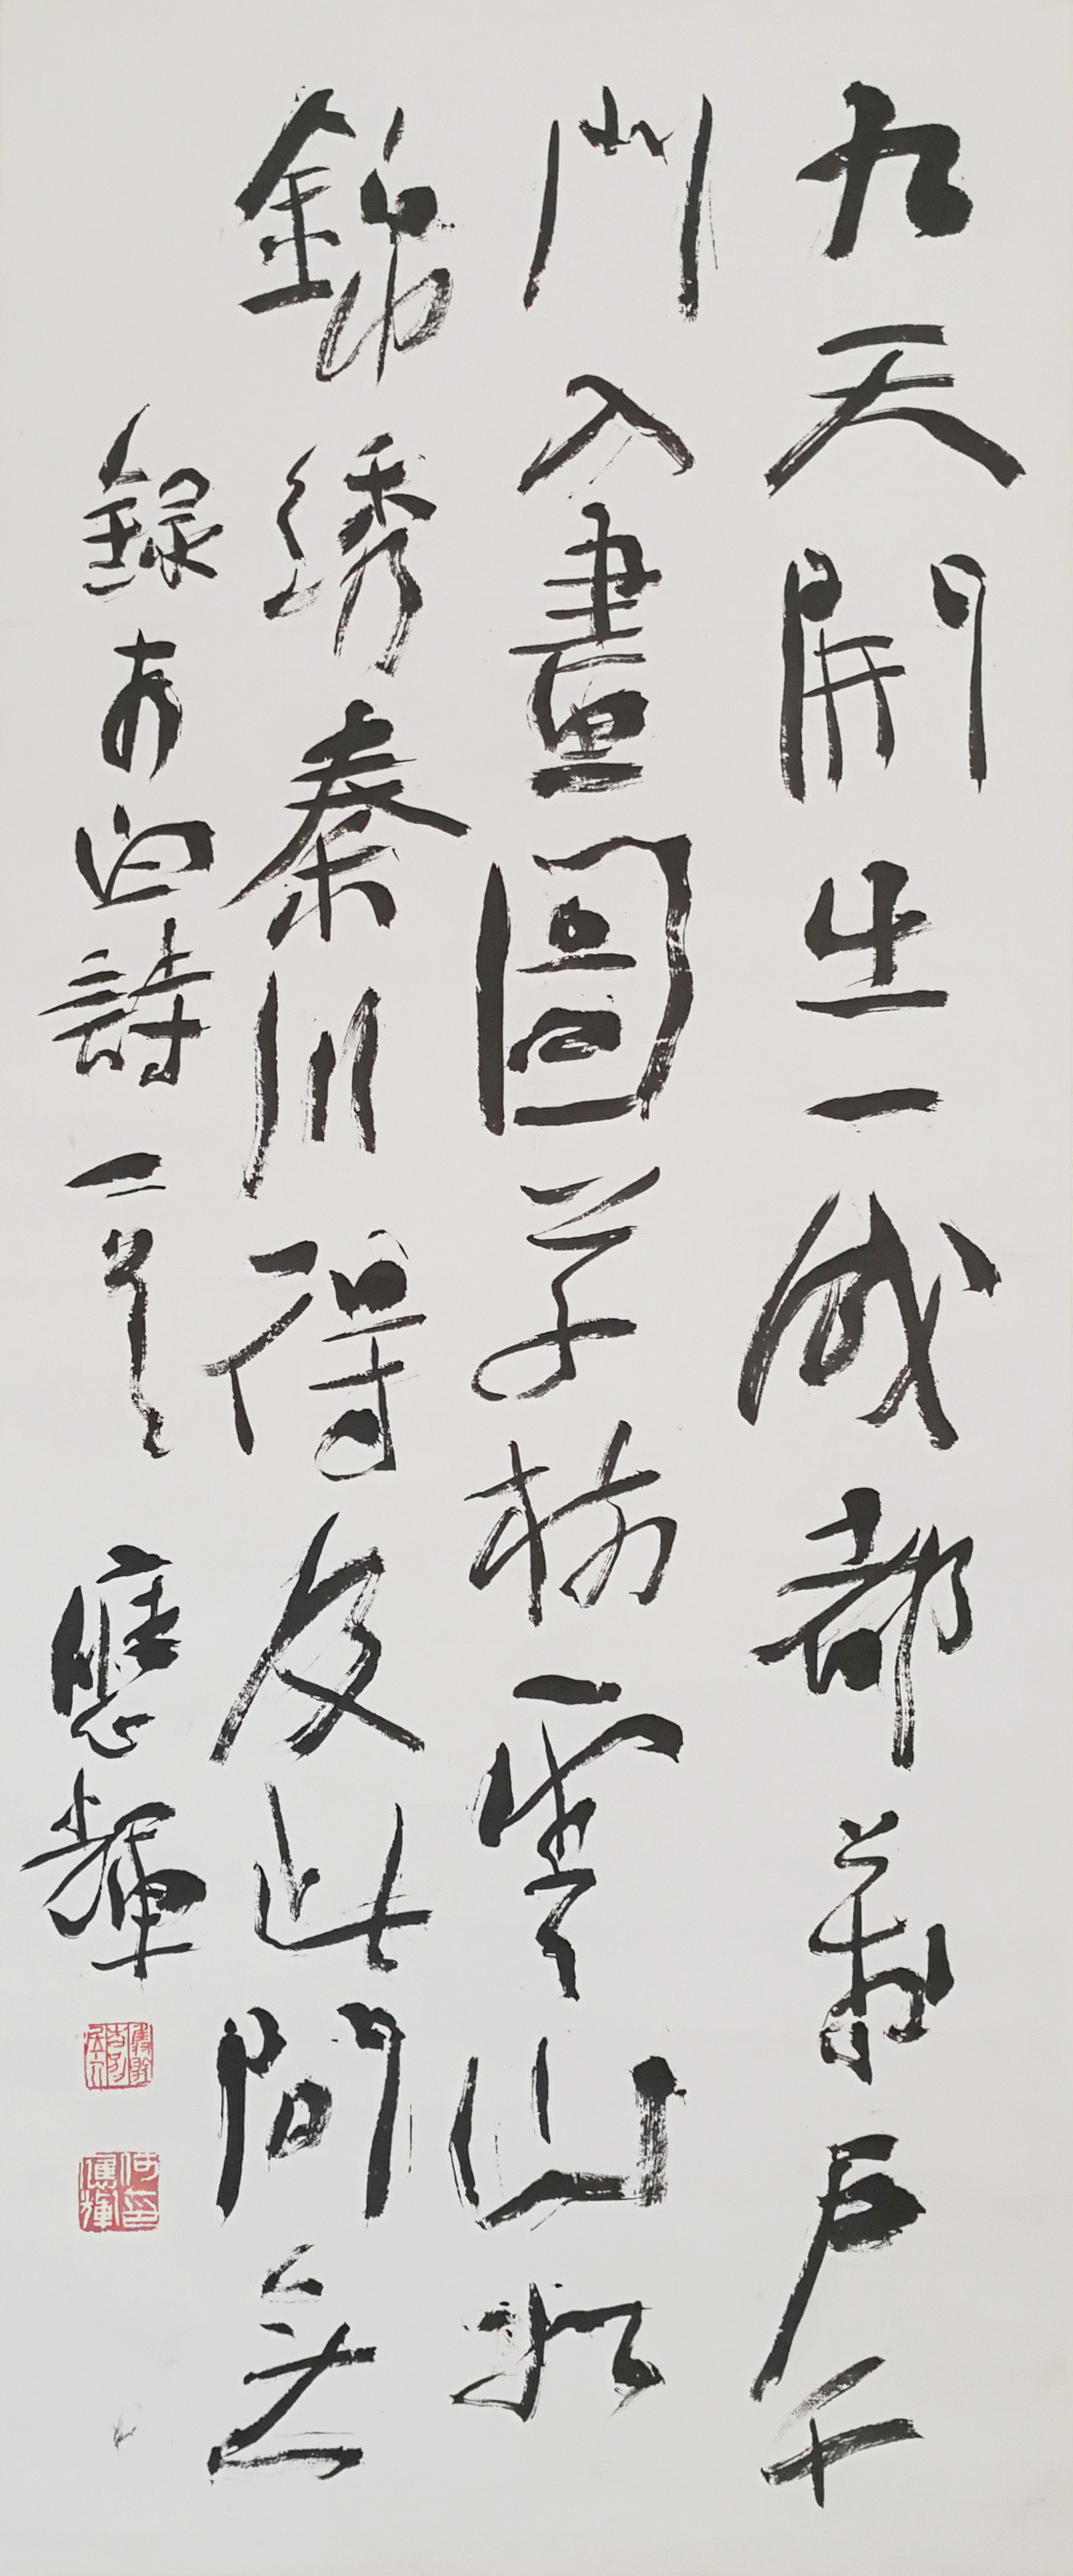 九天開出一成都萬户千
門入畫圖草樹雲山如
錦绣秦川得及此間無
録李白詩一首 應輝
何印應輝